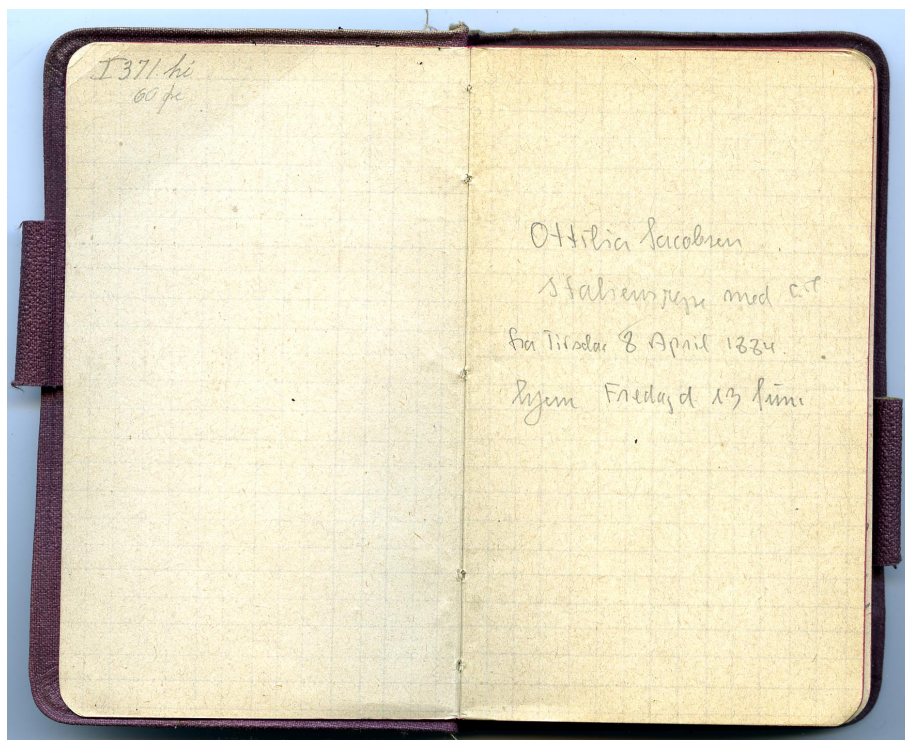 I 371 hi
60 øre
Ottilia Jacobsen
Italiensrejse med C.J.
fra Tirsdag 8 April 1884.
hjem Fredag d 13 Juni